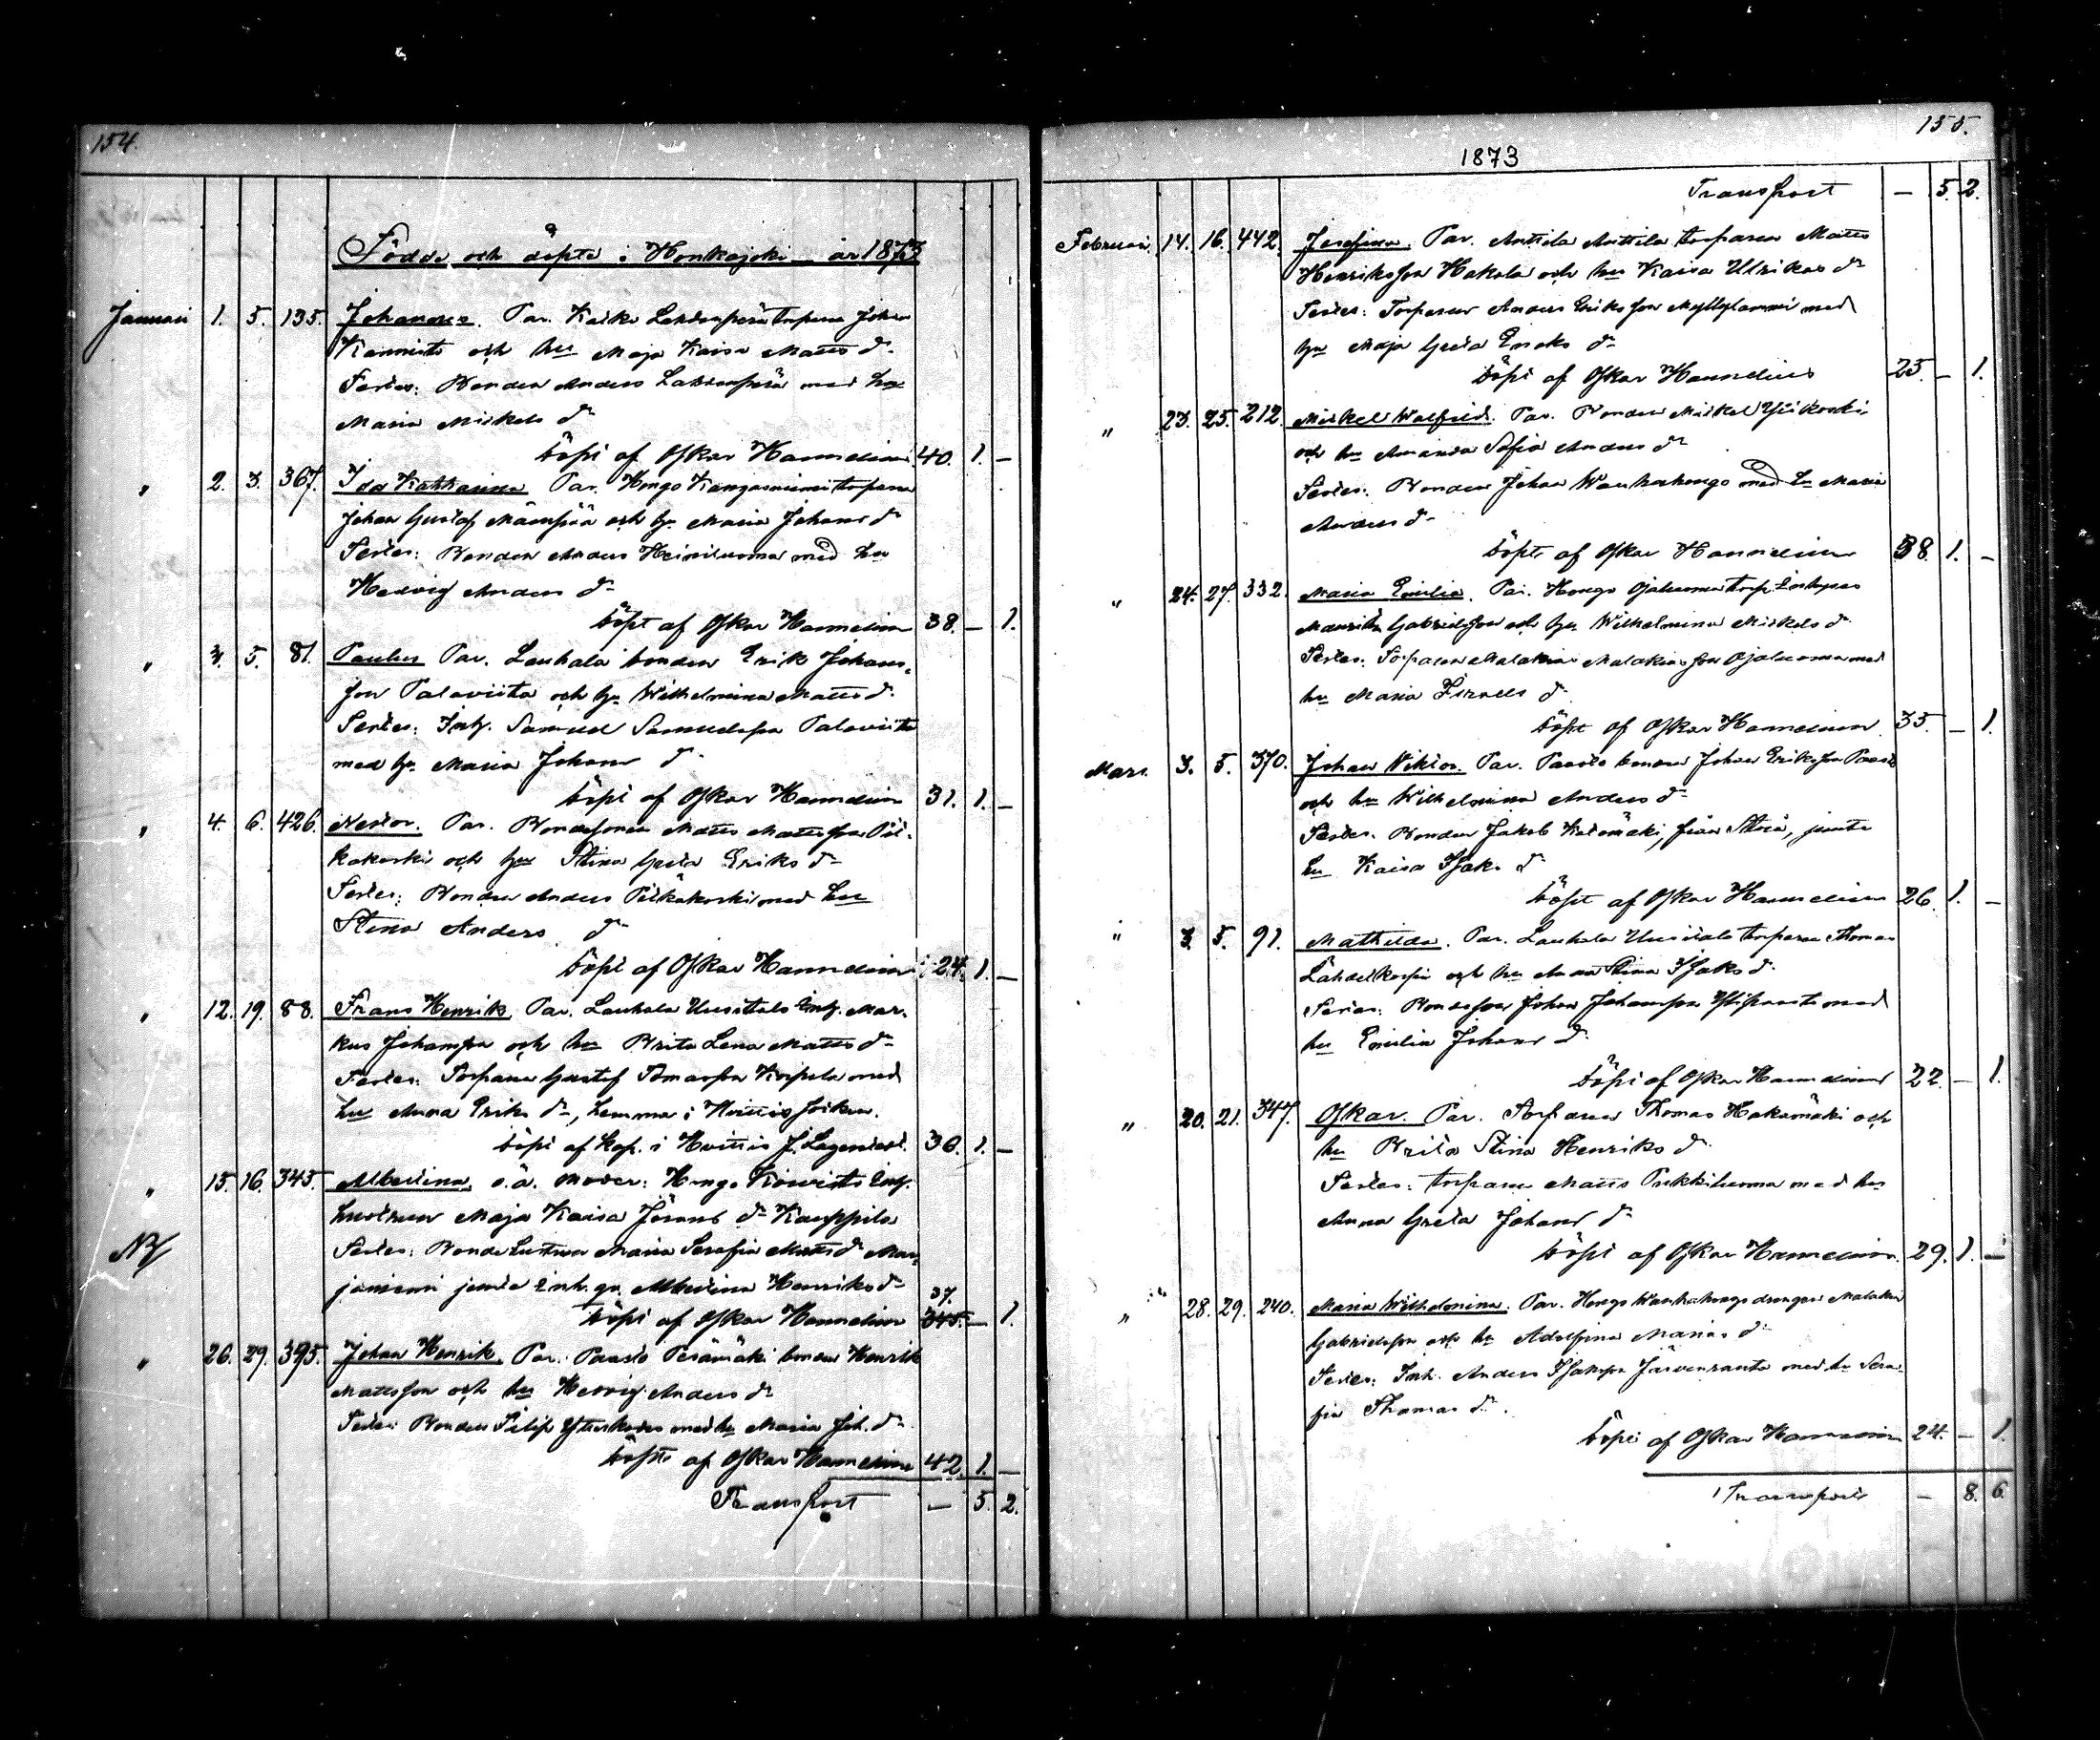 154.
Födde och döpte i Honkajoki år 1873
Januari 1. 5. 135. Johannes. Par. Kaske Lahdenperä torparen Johan
Kannisto och hu Maja Kaisa Matts dr
Testes: Bonden Anders Lahdenperä med hu
Maria Mickels dr
döpt af Oskar Hannelius 40. 1. –
" 2. 3. 367. Ida Katharina Par. Hongo Kangasniemi torparen
Johan Gustaf Mäenpää och hu Maria Johans dr
Testes: Bonden Anders Heiniluoma med hu
Hedvig Anders dr
döpt af Oskar Hannelius 38. – 1.
" 3. 5. 81. Paulus Par. Lauhala bonden Erik Johans-
son Palaviita och hu Wilhelmina Matts dr
Testes: Inh. Samuel Samuelsson Palaviita
med hu Maria Johans dr
döpt af Oskar Hannelius 31. 1. –
" 4. 6. 426. Nestor. Par. Bondesonen Matts Mattsson Pil-
kakoski och hu Stina Greta Eriks dr
Testes: Bonden Anders Pilkakoski med hu
Stina Anders dr
döpt af Oskar Hannelius 24. 1. –
" 12. 19. 88. Frans Henrik. Par. Lauhala Uusitalo Inh. Mar-
kus Johansson och hu Brita Lena Matts dr
Testes: Torparen Gustaf Tomasson Korpela med
hu Anna Eriks dr, hemma i Hvittis socken.
döpt af Kap. i Hvittis J. Lagerstedt. 36. 1. –
" 15. 16. 345. Albertina, o.ä. Moder: Hongo Koivisto Inh.
hustrun Maja Kaisa Jörans dr Kauppila
NB Testes: Bonde hustrun Maria Serafia Matts dr Mar-
janiemi jemte Inh. qv. Albertina Henriks dr
37.
döpt af Oskar Hannelius 345. – 1.
" 26. 29. 395. Johan Henrik. Par. Paasto Perämäki bonden Henrik
Mattsson och hu Hedvig Anders dr
Testes: Bonden Filip med hu Maria Joh. dr
döpt af Oskar Hannelius 42. 1. –
Transport – 5. 2.
155.
1873
Transport – 5. 2.
Februari 14. 16. 442. Josefina. Par. Anttila Anttila torparen Matts
Henriksson Hakola och hu Kaisa Ulrikas dr
Testes: Torparen Anders Eriksson Myllylammi med
hu Maja Greta Eriks dr
döpt af Oskar Hannelius 25. – 1.
" 23. 25. 212. Mickel Walfrid. Par. Bonden Mickel Ylikoski
och hu Amanda Sofia Anders dr
Testes: Bonden Johan Wanhahongo med hu Maria
Anders dr
döpt af Oskar Hannelius 38. 1. –
" 24. 27. 332. Maria Emilia. Par. Hongo Ojaluoma torp. Inhyses
Mauritz Gabrielsson och hu Wilhelmina Mickels dr
Testes: Torparen Malakias Malakiasson Ojaluoma med
hu Maria Israels dr
döpt af Oskar Hannelius 35. – 1.
Mars. 3. 5. 370. Johan Viktor. Par. Paasto bonden Johan Eriksson Paasto
och hu Wilhelmina Anders dr
Testes: Bonden Jakob Katomäki, från Storå, jemte
hu Kaisa Isaks dr
döpt af Oskar Hannelius 26. 1. –
" 3. 5. 91. Mathilda. Par. Lauhala Uusitalo torparen Thomas
Lähdekorpi och hu Anna Stina Isaks dr
Testes: Bondeson Johan Johansson med
hu Emilia Johans dr
döpt af Oskar Hannelius 22. – 1.
" 20. 21. 347. Oskar. Par. Torparen Thomas Hakamäki och
hu Brita Stina Henriks dr
Testes: torparen Matts Pukkiluoma med hu
Anna Greta Johans dr
döpt af Oskar Hannelius. 29. 1. –
" 28. 29. 240. Maria Wilhelmina. Par. Hongo Wanhahongo drengen Malakias
Gabrielsson och hu Adolfina Marias dr
Testes: Inh. Anders Isaksson Järvenranta med hu Sera-
fia Thomas dr.
döpt af Oskar Hannelius 24. – 1.
Transport – 8. 6.